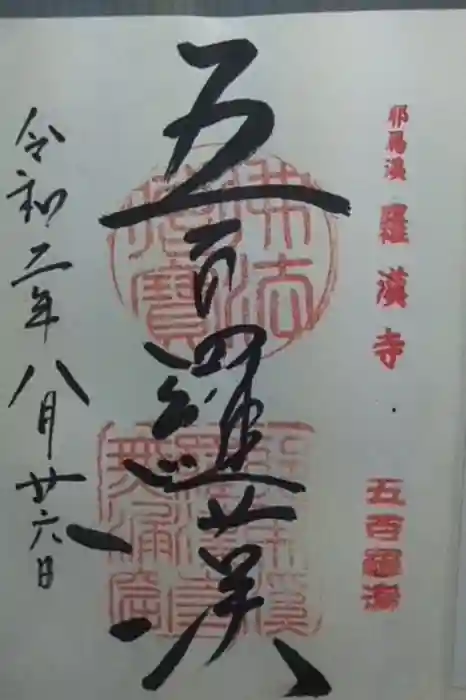 耶馬溪 羅漢寺
五百羅漢
五百羅漢
令和二年八月廿六日
佛法僧寶